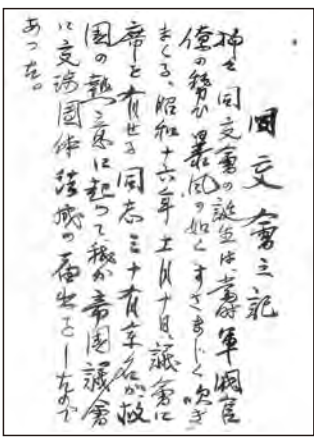 同交會之記
抑々同交會の誕生は、當軍閥官
僚の勢ひ暴風の如くすさまじく吹き
まくる、昭和十六年十一月十日、議會に
席を有せる同志三十有余名が救
国の熱意に起つて我が帝国議會
に交渉団体結成の届出をしたので
あつた。